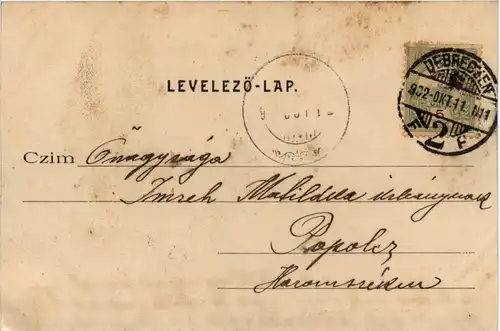 LEVELEZŐ-LAP.
DEBRECZEN
902-OKT.11. N11
5
2
F
Czim Őnagysága
Imreh Matildka urhánynak
Papolcz
Háromszéken